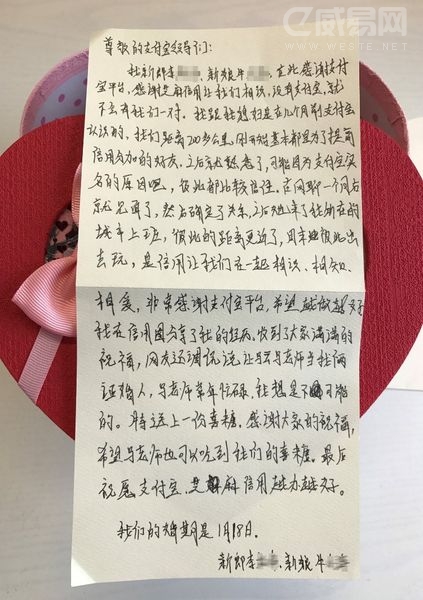 威易网
WWW.WEISTE.NET
尊敬的支付宝领导们:
我新郎李 、新娘牛 ,在此感谢支付
宝平台,感谢芝麻信用让我们相识,没有支付宝,就
不会有我们一对。我跟我媳妇是在几个月前支付宝
认识的,我们距离200多公里,刚开始基本都是为了提高
信用分加的好友,之后就熟悉了,可能因为支付宝实
名的原因吧,彼此都比较信任。在网聊一个月后
就见面了,然后确定了关系,之后她来了我所在的
城市上班,彼此的距离更近了,周末也彼此出
去玩,是信用让我们在一起相识、相知、
相爱,非常感谢支付宝平台,希望越做越好
我在信用圈分享了我的经历,收到了大家满满的
祝福,网友还调侃说让马云老师当我俩
证婚人,马老师常年忙碌,我想是不可能
的。特送上一份喜糖,感谢大家的祝福,
希望马老师也可以吃到我们的喜糖。最后
祝愿支付宝,芝麻信用越办越好。
我们的婚期是1月18日。
新郎李 、新娘牛